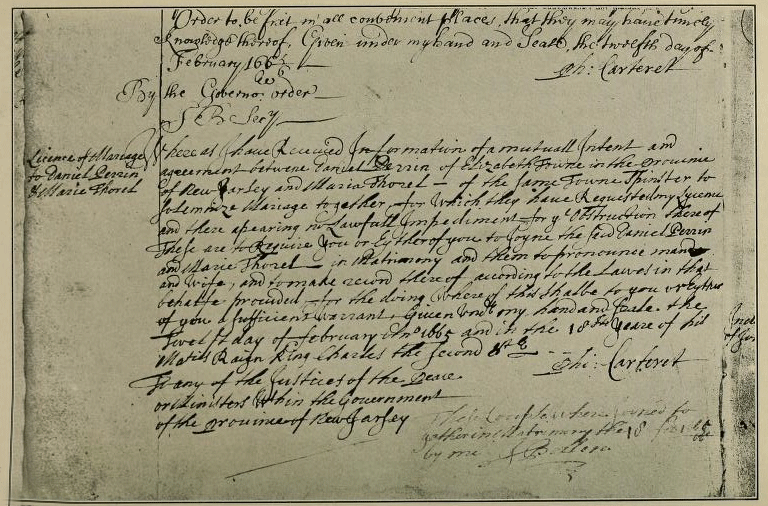 Order to be set in all convenient Places, that they may have timely
knowledge thereof, Given under my hand and Seale, the twelfth day of
February 1665
Phi: Carteret
By the Governors order
J B Secy
Licence of Mariage
to Daniel Perrin
& Marie Thorel
Whereas I have Received Information of a mutuall Intent and
agreement betwene Daniel Perrin of Elizabeth Towne in the province
of New Jarsey and Maria Thorel of the same Towne Spinster to
solemnize Mariage together, for which they have Requested my Lycence
and there apearing no Lawfull Impediment for ye Obstruction thereof
These are to Require You or Eyther of you to Joyne the said Daniel Perrin
and Marie Thorel in Matrimony and them to pronounce man
and wife, and to make record thereof according to the Lawes in that
behalfe provided, for the doing whereof this shalbe to you or Eyther
of you a sufficient warrant, Given undr my hand and Seale the
Twelfth day of february Ano 1665 and in the 18th yeare of his
Matis Raign King Charles the Second &c
Phi: Carteret
To any of the Justices of the Peace
or Ministers within the Government
of the province of New Jarsey
This Couple where Joyned to
gether in Matrimony the 18
by me J Bollen